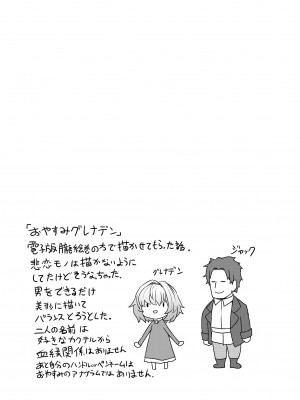 「おやすみグレナデン」
電子版朧絵巻の方で描かせてもらった話.
悲恋モノは描かないように
してたけどそうなっちゃった.
男をできるだけ
美形に描いて
バランスとろうとした.
二人の名前は
好きなカクテルから
血縁関係はありません
あと自分のハンドル・ペンネームは
おやすみのアナグラムではありません.
グレナデン
ジャック